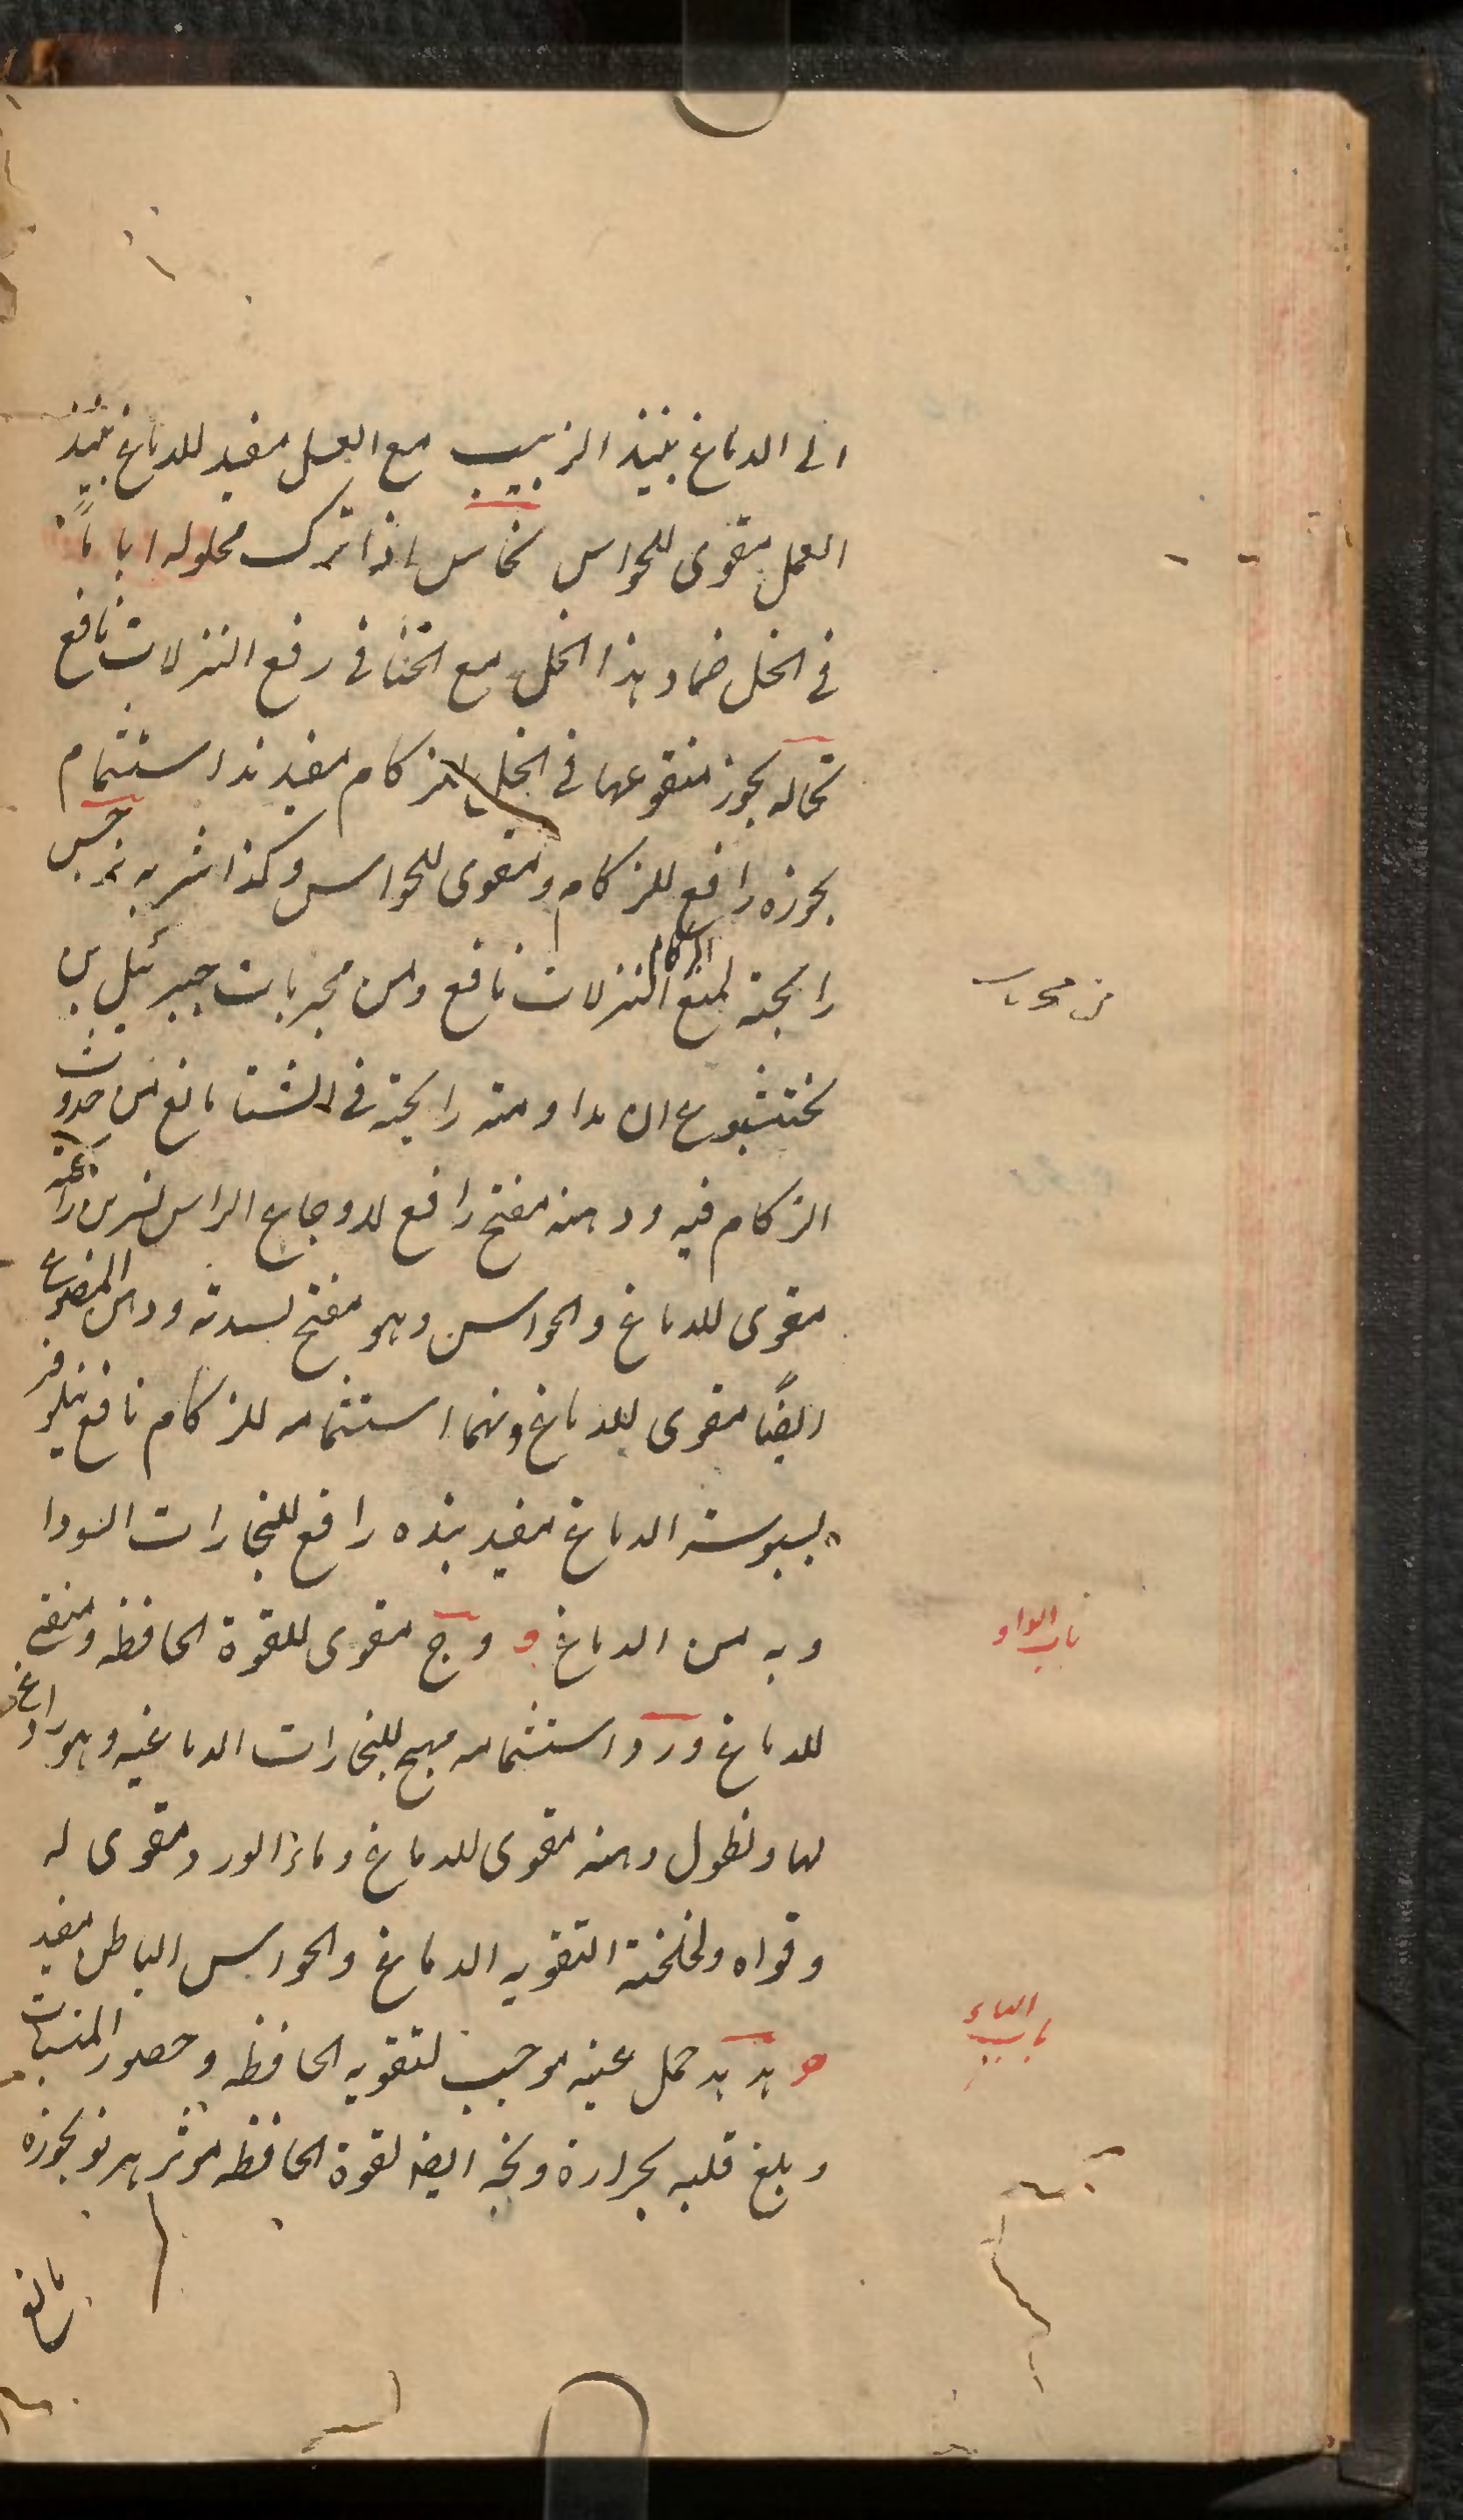 الى الدماغ نبيذ الزبيب مع العسل مفيد للدماغ نبيذ
العسل مقوى للحواس نحاس اذا ترك محلوله اياماً
فى الخل ضماد هذا الخل مع الحنا فى رفع النزلات نافع
نخاله بخور منقوعها فى الخل للزكام مفيد ند استشمام
بخوره رافع للزكام ومقوى للحواس وكذا شربه نرجس
رايحته لمنع الزكام النزلات نافع ومن مجربات جبرئيل بن
بختيشوع ان مداومته رايحته فى الشتا مانع من حدوث
الزكام فيه ودهنه مفتح رافع لاوجاع الراس نسرين رائحته
مقوى للدماغ والحواس وهو مفتح لسدته ودهن المصنوع
ايضاً مقوى للدماغ ونهما استشمامه للزكام نافع نيلوفر
ليبوسته الدماغ مفيد بذره رافع للبخارات السودا
ويه من الدماغ و وج مقوى للقوة الحافظه ومنقى
للدماغ ورد استشمامه مهيج للبخارات الدماغيه وهو رادع
لها ونطول دهنه مقوى للدماغ وماء الورد مقوى له
وقواه ولخلخته التقويه الدماغ والحواس الباطن مفيد
ه هدهد حمل عينه موجب لتقويه الحافظه وحضور المنسيات
وبلغ قلبه بحرارة ومخه ايضا لقوة الحافظه موثر هرنو بخوره
مانع
من مجربات
باب الواو
باب الهاء